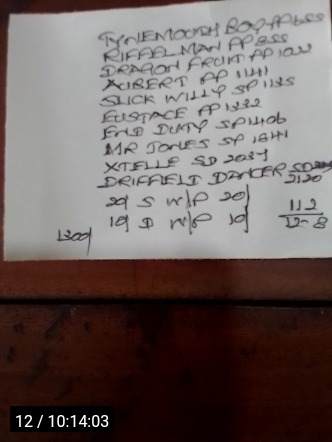 TYNEMOUTH BOY AP 655
RIFFELMAN AP 855
DRAGON FRUIT AP 1033
AUBERT AP 1141
SLICK WILLY SP 1135
EUSTACE AP 1332
END DUTY SP 1406
MR JONES SP 1841
XTELLE SD
DRIFFIELD DANCER
2120
20/ S W/P 20/
10/ D W/P 10/
112
12-8
1300/
12 / 10:14:03